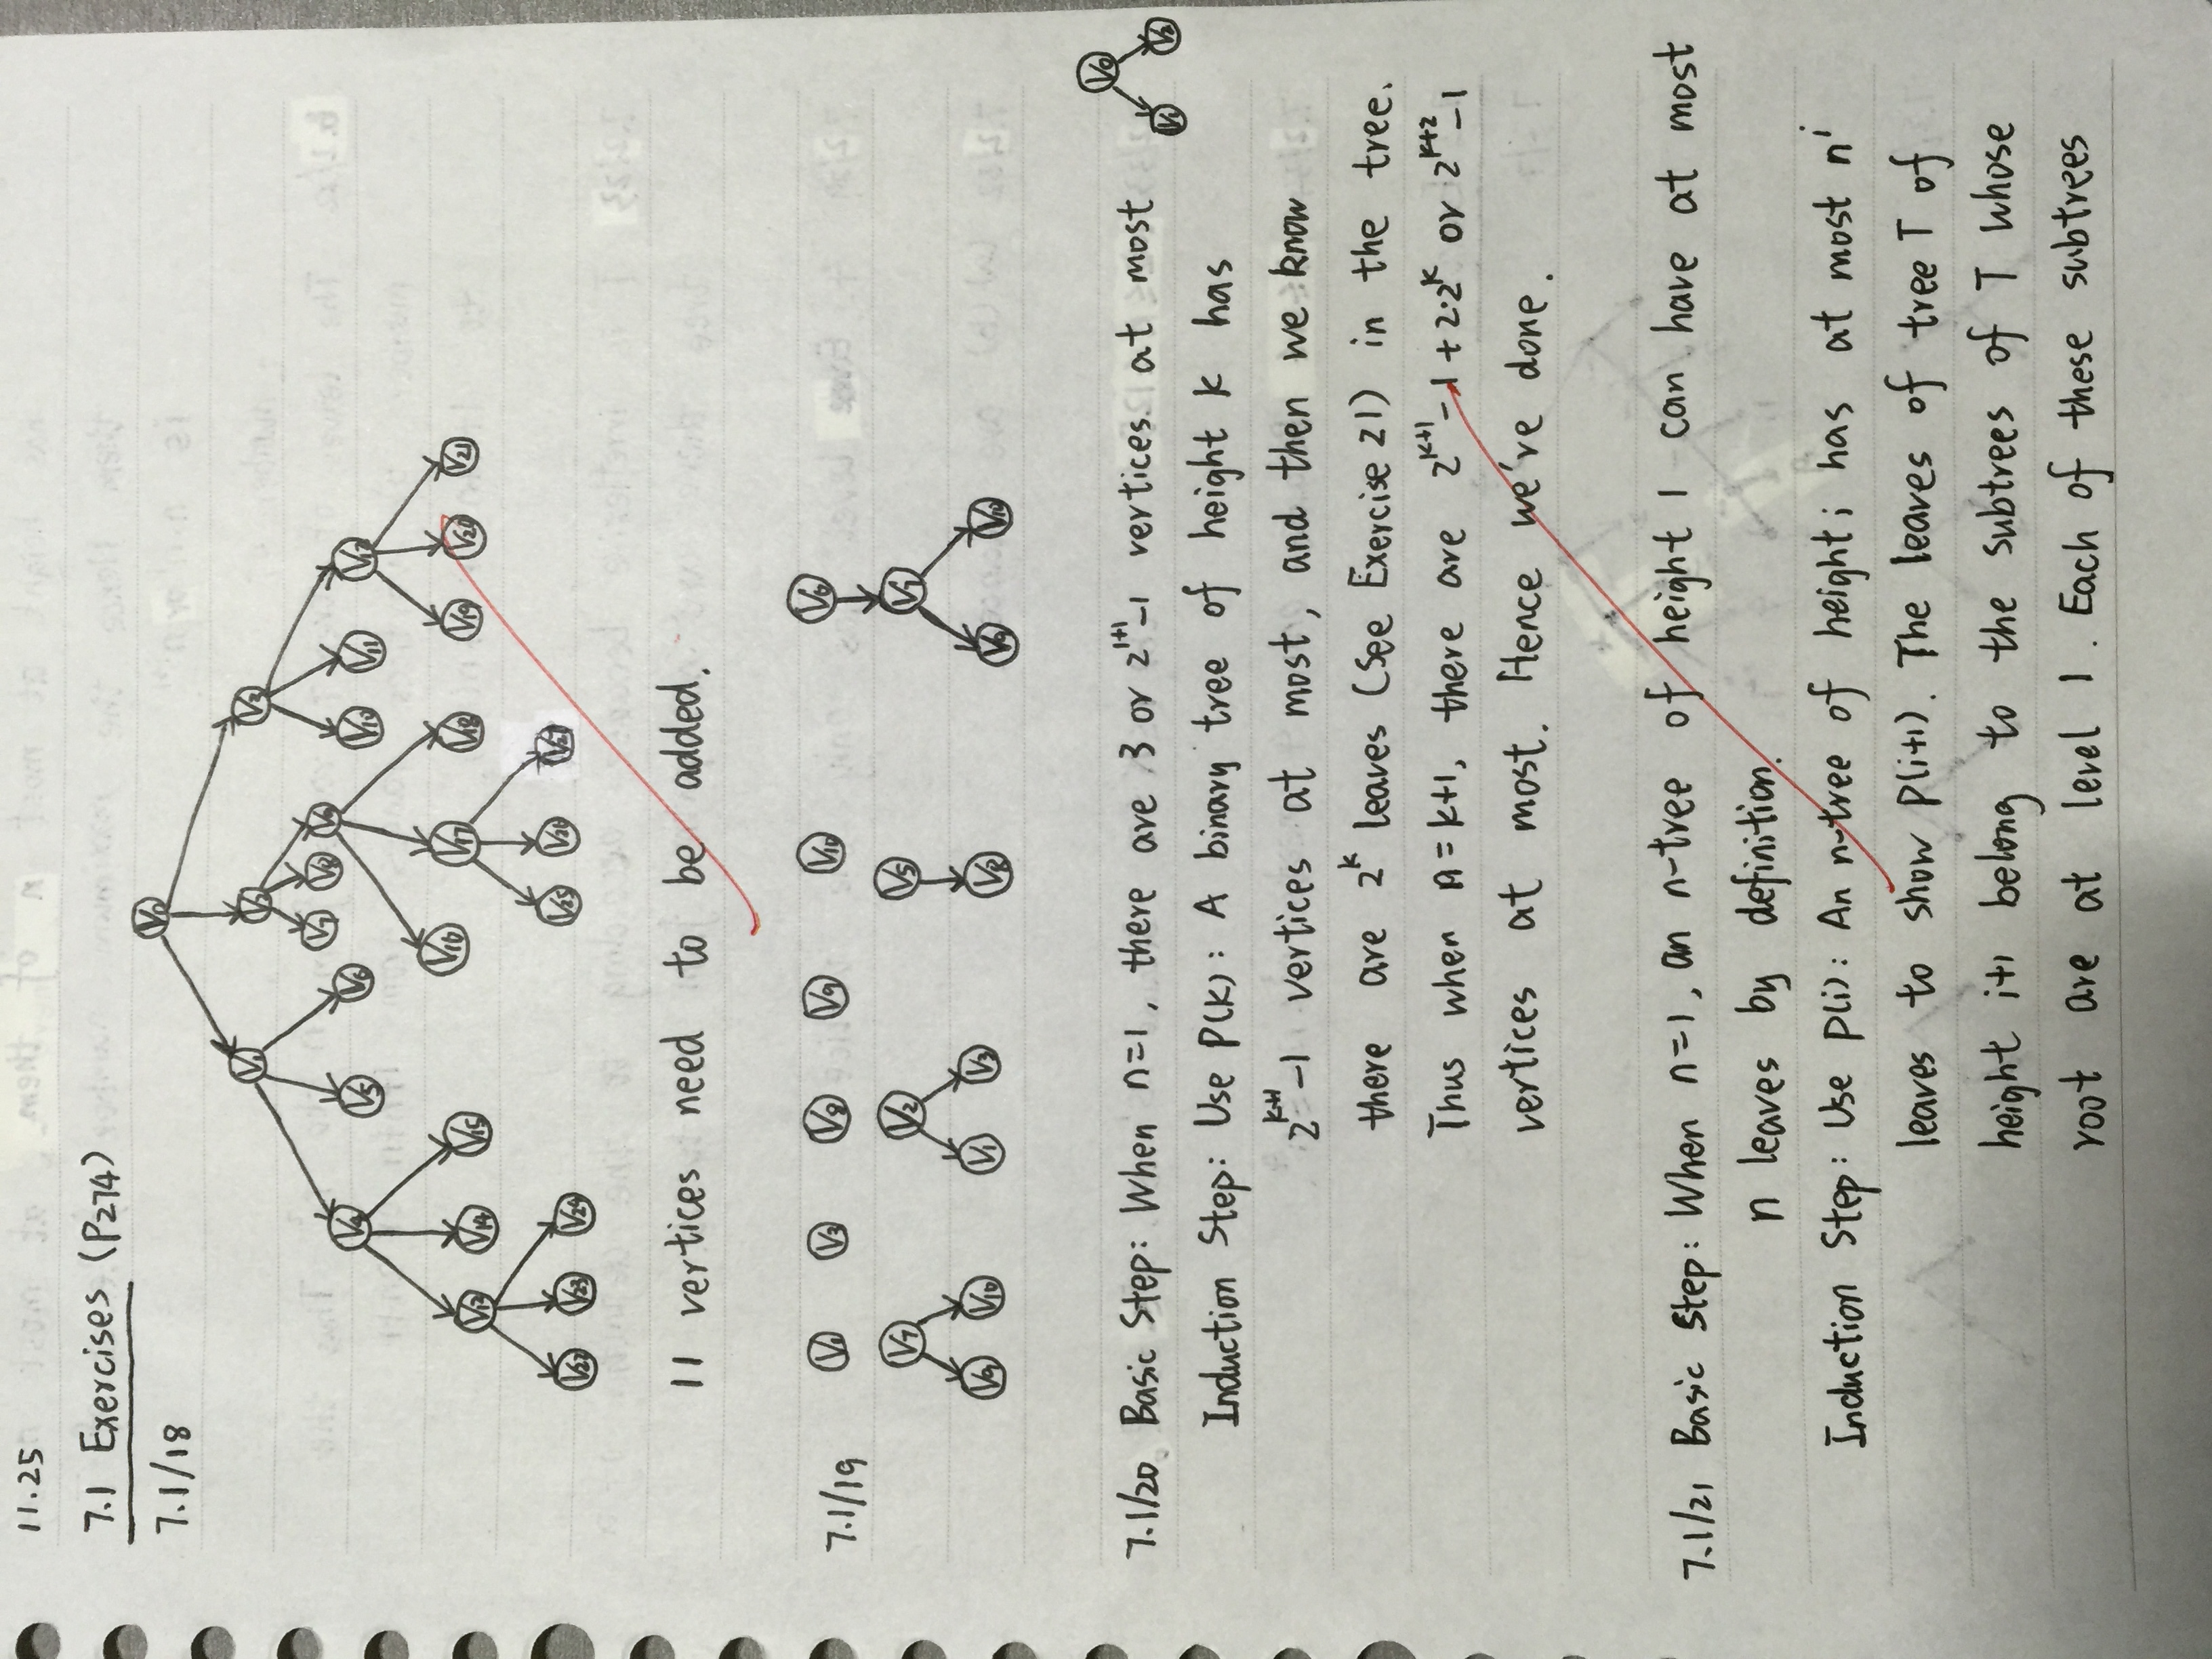 11.25
7.1 Exercises (P274)
7.1/18
V0
V1 V2 V3
V4 V5 V6 V7 V8 V9 V10 V11 V12
V13 V14 V15 V16 V17 V18 V19 V20 V21
V22 V23 V24 V25 V26 V27
11 vertices need to be added.
7.1/19
V1 V3 V8 V9 V10 V6
V7 V2 V5 V7
V9 V10 V1 V3 V8 V9 V10
7.1/20 Basic Step: When n=1, there are 3 or 2^{1+1}-1 vertices at most
V0
V1 V2
Induction Step: Use P(k): A binary tree of height k has
2^{k+1}-1 vertices at most, and then we know
there are 2^k leaves (See Exercise 21) in the tree.
Thus when n=k+1, there are 2^{k+1}-1+2·2^k or 2^{k+2}-1
vertices at most. Hence we've done.
7.1/21 Basic Step: When n=1, an n-tree of height 1 can have at most
n leaves by definition.
Induction Step: Use P(i): An n-tree of height i has at most n^i
leaves to show P(i+1). The leaves of tree T of
height i+1 belong to the subtrees of T whose
root are at level 1. Each of these subtrees